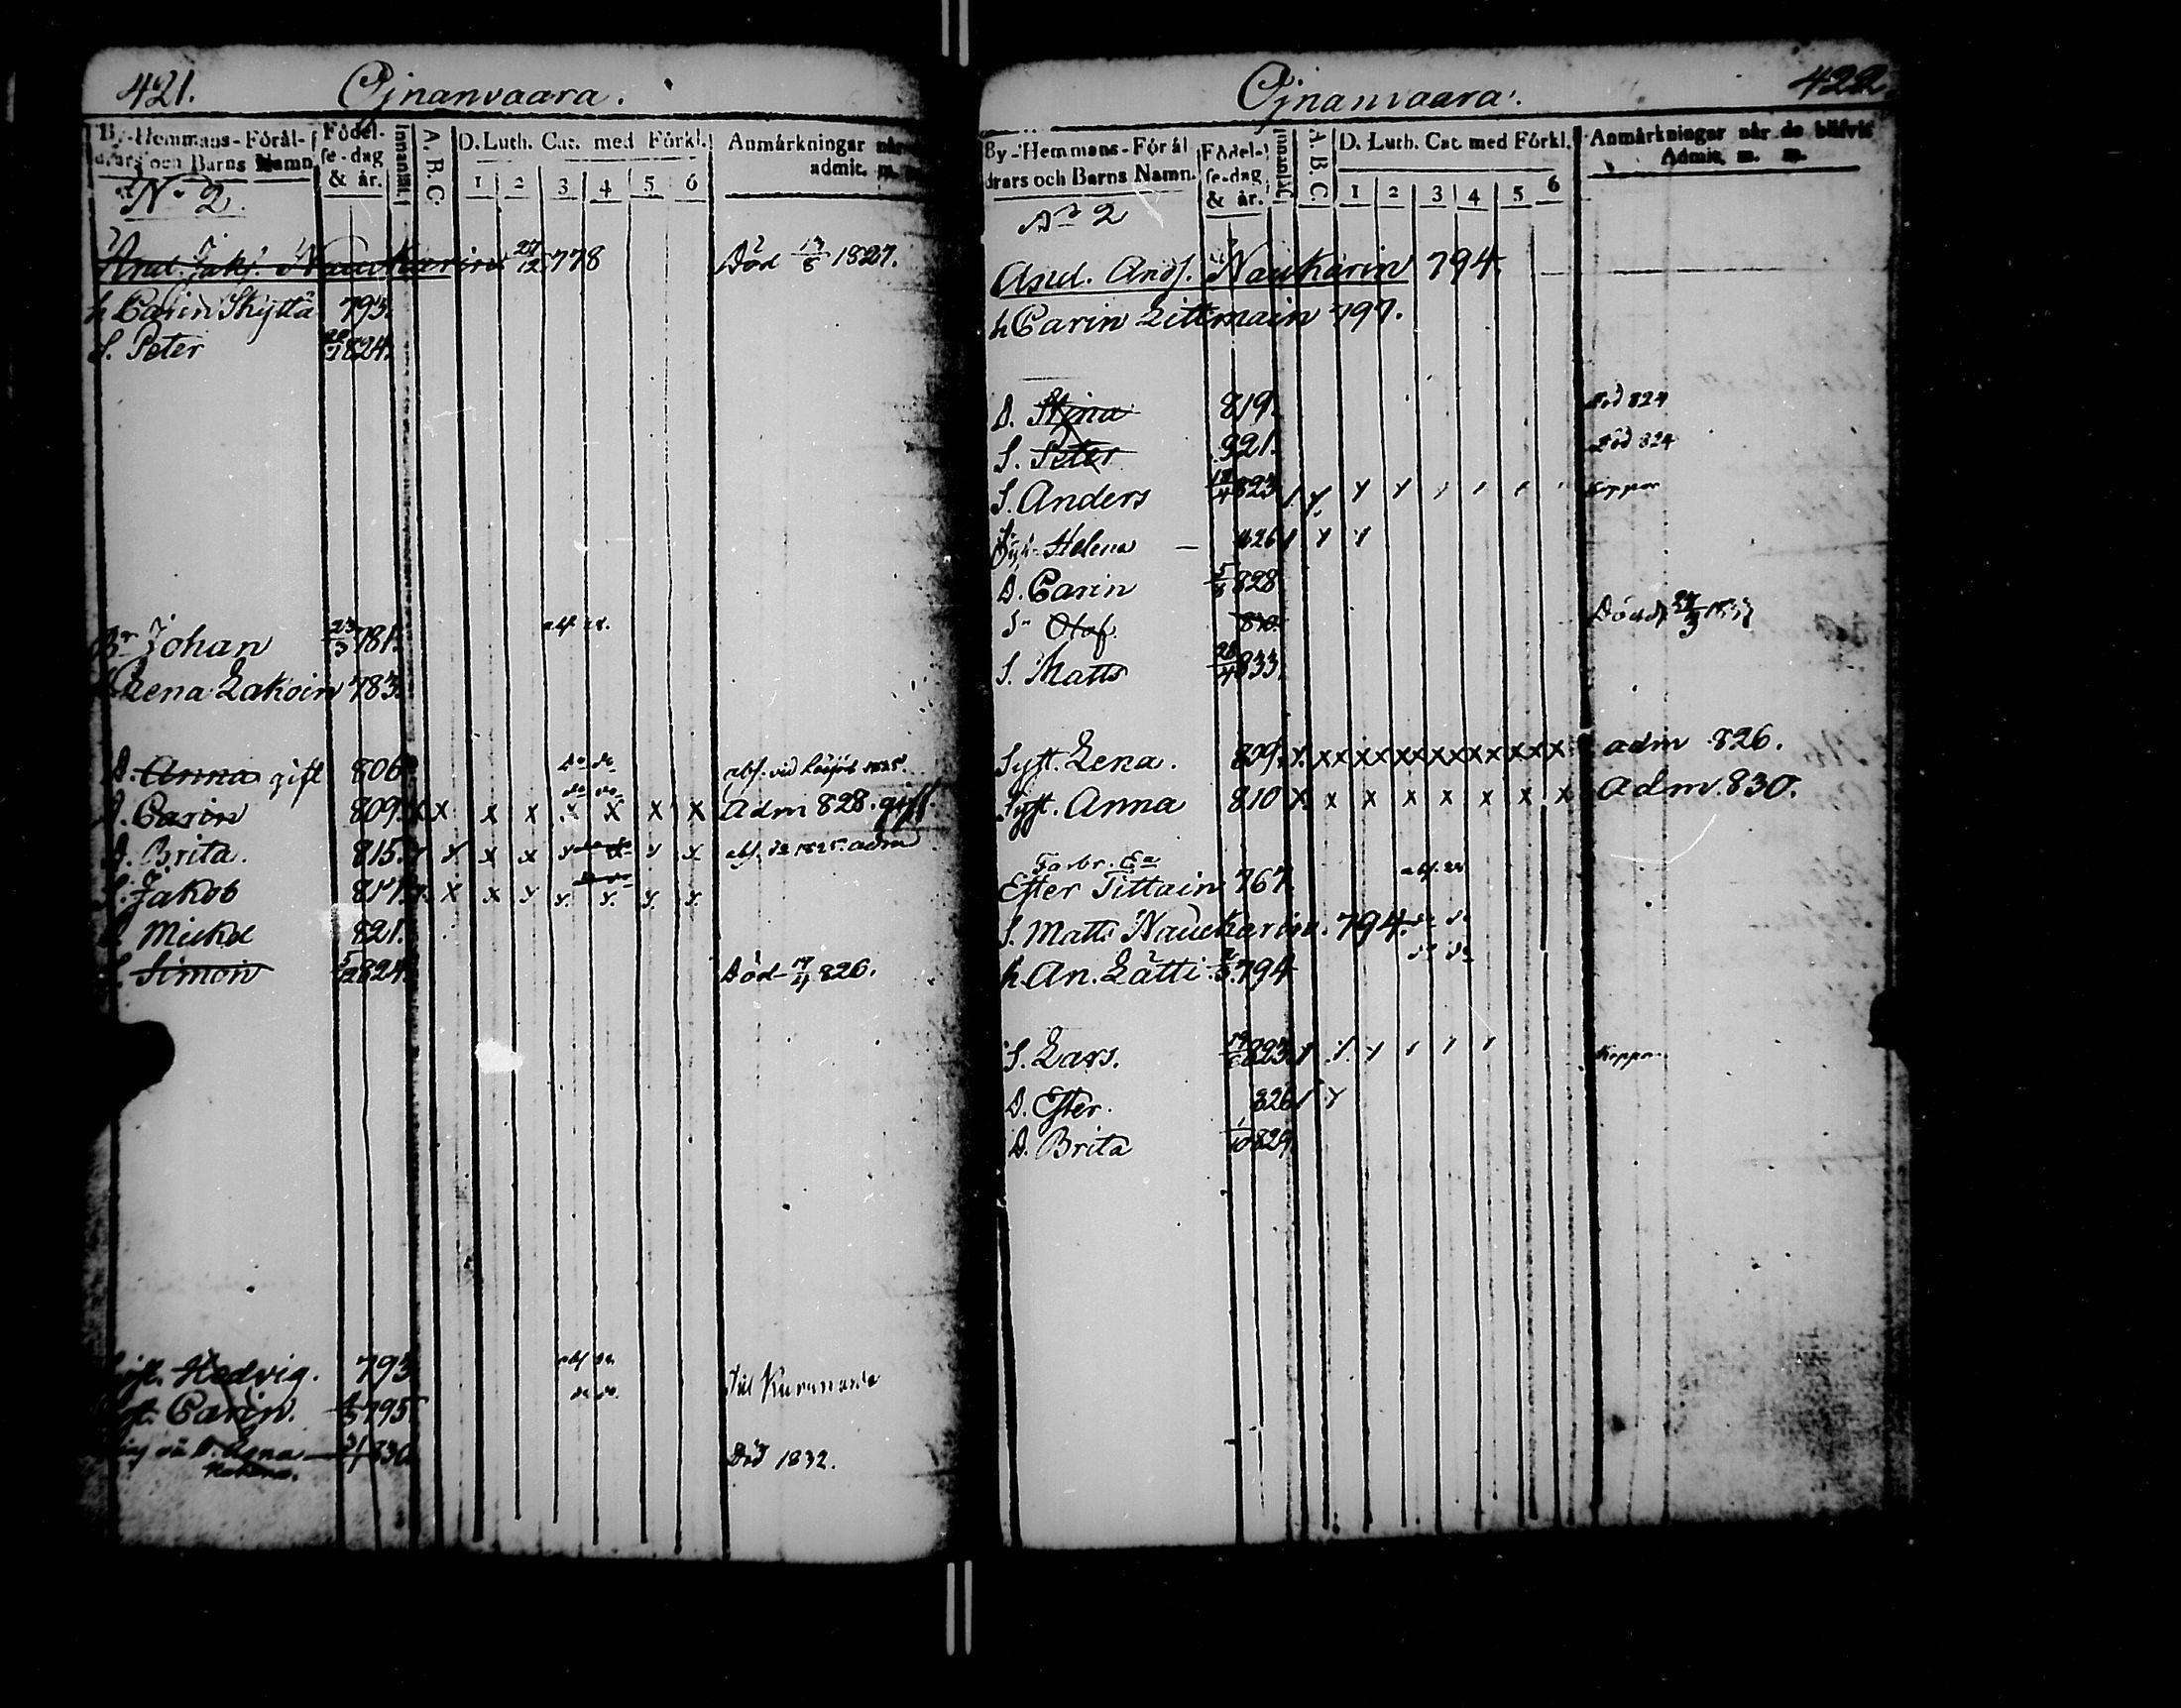 421. Ojnanvaara.
By-Hemmans-Föräl-
drars och Barns Namn.
Födel-
se-dag
& år.
Innantill.
A. B. C.
D. Luth. Cat. med Förkl.
1 2 3 4 5 6
Anmärkningar når
admit. m.
N. 2.
And. Jakf. Naukarin 27/12 778 Död 13/8 1827.
h Carin Skyttä 793.
S. Peter 824.
Br Johan 23/3 781.
Lena Lakoin 783.
D. Anna gift 806
D. Carin 809. x x x x x x x x Adm 828. gift.
D. Brita. 815. x x x x x x x adm
S. Jakob 817. x x x x x x x x
Mickel 821.
S. Simon 5/2 824. Död 17/4 826.
Hedvig. 793
Carin. 795
D. Lena 830 Död 1832.
Ojnanvaara. 422
By-Hemmans-Föräl
drars och Barns Namn.
Födel-
se-dag
& år.
Innantill
A. B. C.
D. Luth. Cat. med Förkl.
1 2 3 4 5 6
Anmärkningar når de blifvit
Admit. m. m.
No 2
And. Andf. Naukarin 794.
h Carin Littmain 797.
D. Stina 819. Död 824
S. Peter 821. Död 824
S. Anders 823 Koppor
Helena 826
D. Carin 828
S. Olof 830.
S. Matts 833.
Syft. Lena. 809. x xx xx xx xx xx xx x adm 826.
Syft. Anna 810 x x x x x x x x Adm. 830.
Farbr. Ea
Efter Tittain 767.
S. Matts Naukarin. 794.
h. An. Lätti 794
S. Lars. 823 Koppor
D. Efter. 826
D. Brita 829